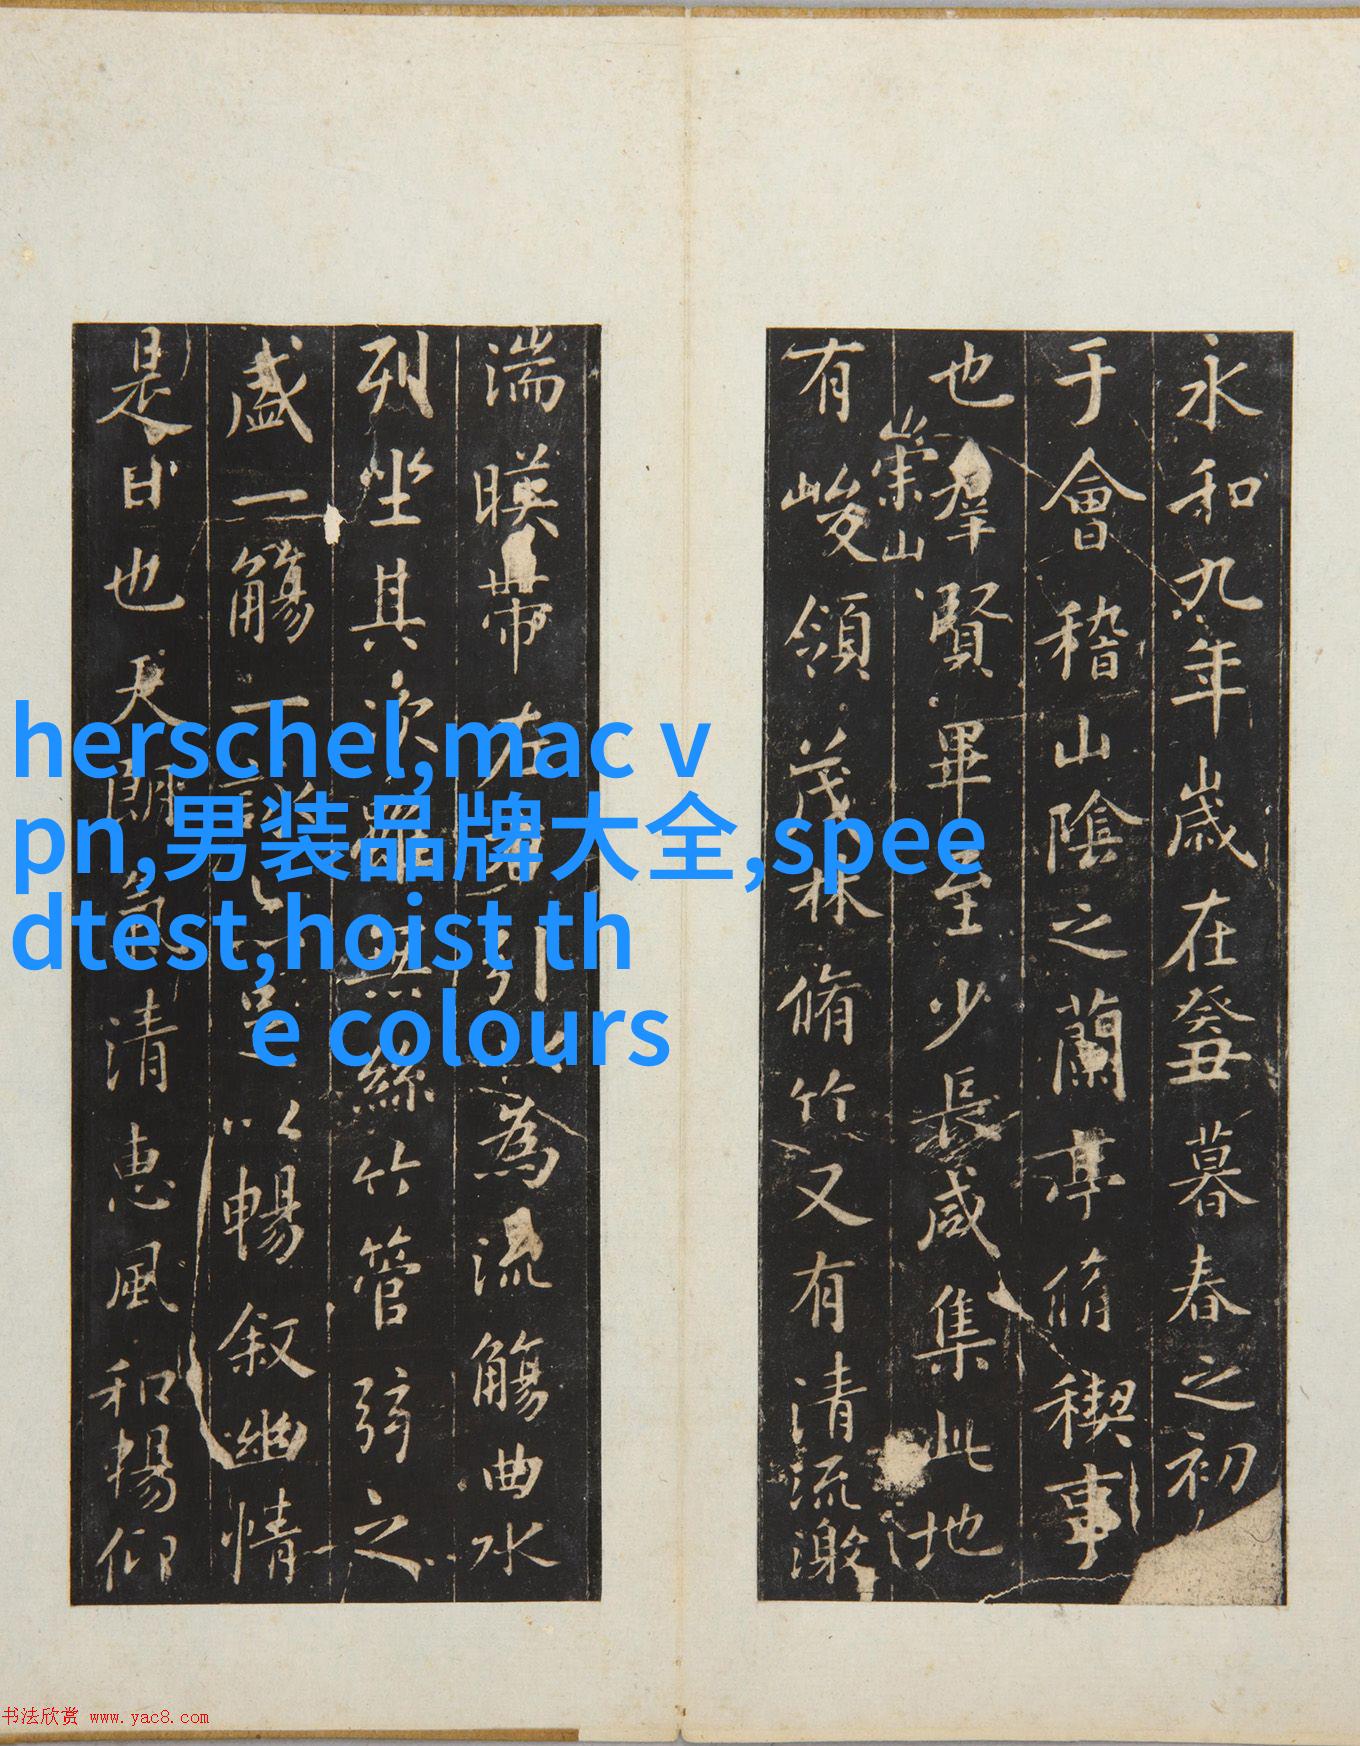 永和九年歲在癸丑暮春之初
于會稽山陰之蘭亭脩稧事
也羣賢畢至少長咸集此地
崇山
有峻領茂林脩竹又有清流激
湍暎帶左引為流觴曲水
列坐其次無絲竹管弦之
盛一觴一詠以暢叙幽情
是日也天朗清惠風和暢仰
herschel,mac v
pn,男装品牌大全,spee
dtest,hoist th
e colours
书法欣赏 www.yac8.com